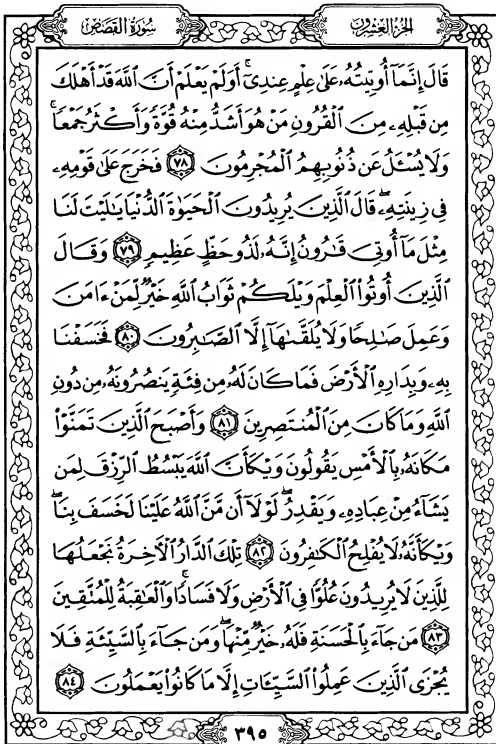 الجزء العشرون
سورة القصص
قَالَ إِنَّمَآ أُوتِيتُهُۥ عَلَىٰ عِلْمٍ عِندِىٓ ۚ أَوَلَمْ يَعْلَمْ أَنَّ ٱللَّهَ قَدْ أَهْلَكَ
مِن قَبْلِهِۦ مِنَ ٱلْقُرُونِ مَنْ هُوَ أَشَدُّ مِنْهُ قُوَّةً وَأَكْثَرُ جَمْعًا ۚ
وَلَا يُسْـَٔلُ عَن ذُنُوبِهِمُ ٱلْمُجْرِمُونَ ۝٧٨ فَخَرَجَ عَلَىٰ قَوْمِهِۦ
فِى زِينَتِهِۦ ۖ قَالَ ٱلَّذِينَ يُرِيدُونَ ٱلْحَيَوٰةَ ٱلدُّنْيَا يَـٰلَيْتَ لَنَا
مِثْلَ مَآ أُوتِىَ قَـٰرُونُ إِنَّهُۥ لَذُو حَظٍّ عَظِيمٍ ۝٧٩ وَقَالَ
ٱلَّذِينَ أُوتُوا۟ ٱلْعِلْمَ وَيْلَكُمْ ثَوَابُ ٱللَّهِ خَيْرٌ لِّمَنْ ءَامَنَ
وَعَمِلَ صَـٰلِحًا وَلَا يُلَقَّىٰهَآ إِلَّا ٱلصَّـٰبِرُونَ ۝٨٠ فَخَسَفْنَا
بِهِۦ وَبِدَارِهِ ٱلْأَرْضَ فَمَا كَانَ لَهُۥ مِن فِئَةٍ يَنصُرُونَهُۥ مِن دُونِ
ٱللَّهِ وَمَا كَانَ مِنَ ٱلْمُنتَصِرِينَ ۝٨١ وَأَصْبَحَ ٱلَّذِينَ تَمَنَّوْا۟
مَكَانَهُۥ بِٱلْأَمْسِ يَقُولُونَ وَيْكَأَنَّ ٱللَّهَ يَبْسُطُ ٱلرِّزْقَ لِمَن
يَشَآءُ مِنْ عِبَادِهِۦ وَيَقْدِرُ ۖ لَوْلَآ أَن مَّنَّ ٱللَّهُ عَلَيْنَا لَخَسَفَ بِنَا ۖ
وَيْكَأَنَّهُۥ لَا يُفْلِحُ ٱلْكَـٰفِرُونَ ۝٨٢ تِلْكَ ٱلدَّارُ ٱلْـَٔاخِرَةُ نَجْعَلُهَا
لِلَّذِينَ لَا يُرِيدُونَ عُلُوًّا فِى ٱلْأَرْضِ وَلَا فَسَادًا ۚ وَٱلْعَـٰقِبَةُ لِلْمُتَّقِينَ
۝٨٣ مَن جَآءَ بِٱلْحَسَنَةِ فَلَهُۥ خَيْرٌ مِّنْهَا ۖ وَمَن جَآءَ بِٱلسَّيِّئَةِ فَلَا
يُجْزَى ٱلَّذِينَ عَمِلُوا۟ ٱلسَّيِّـَٔاتِ إِلَّا مَا كَانُوا۟ يَعْمَلُونَ ۝٨٤
٣٩٥